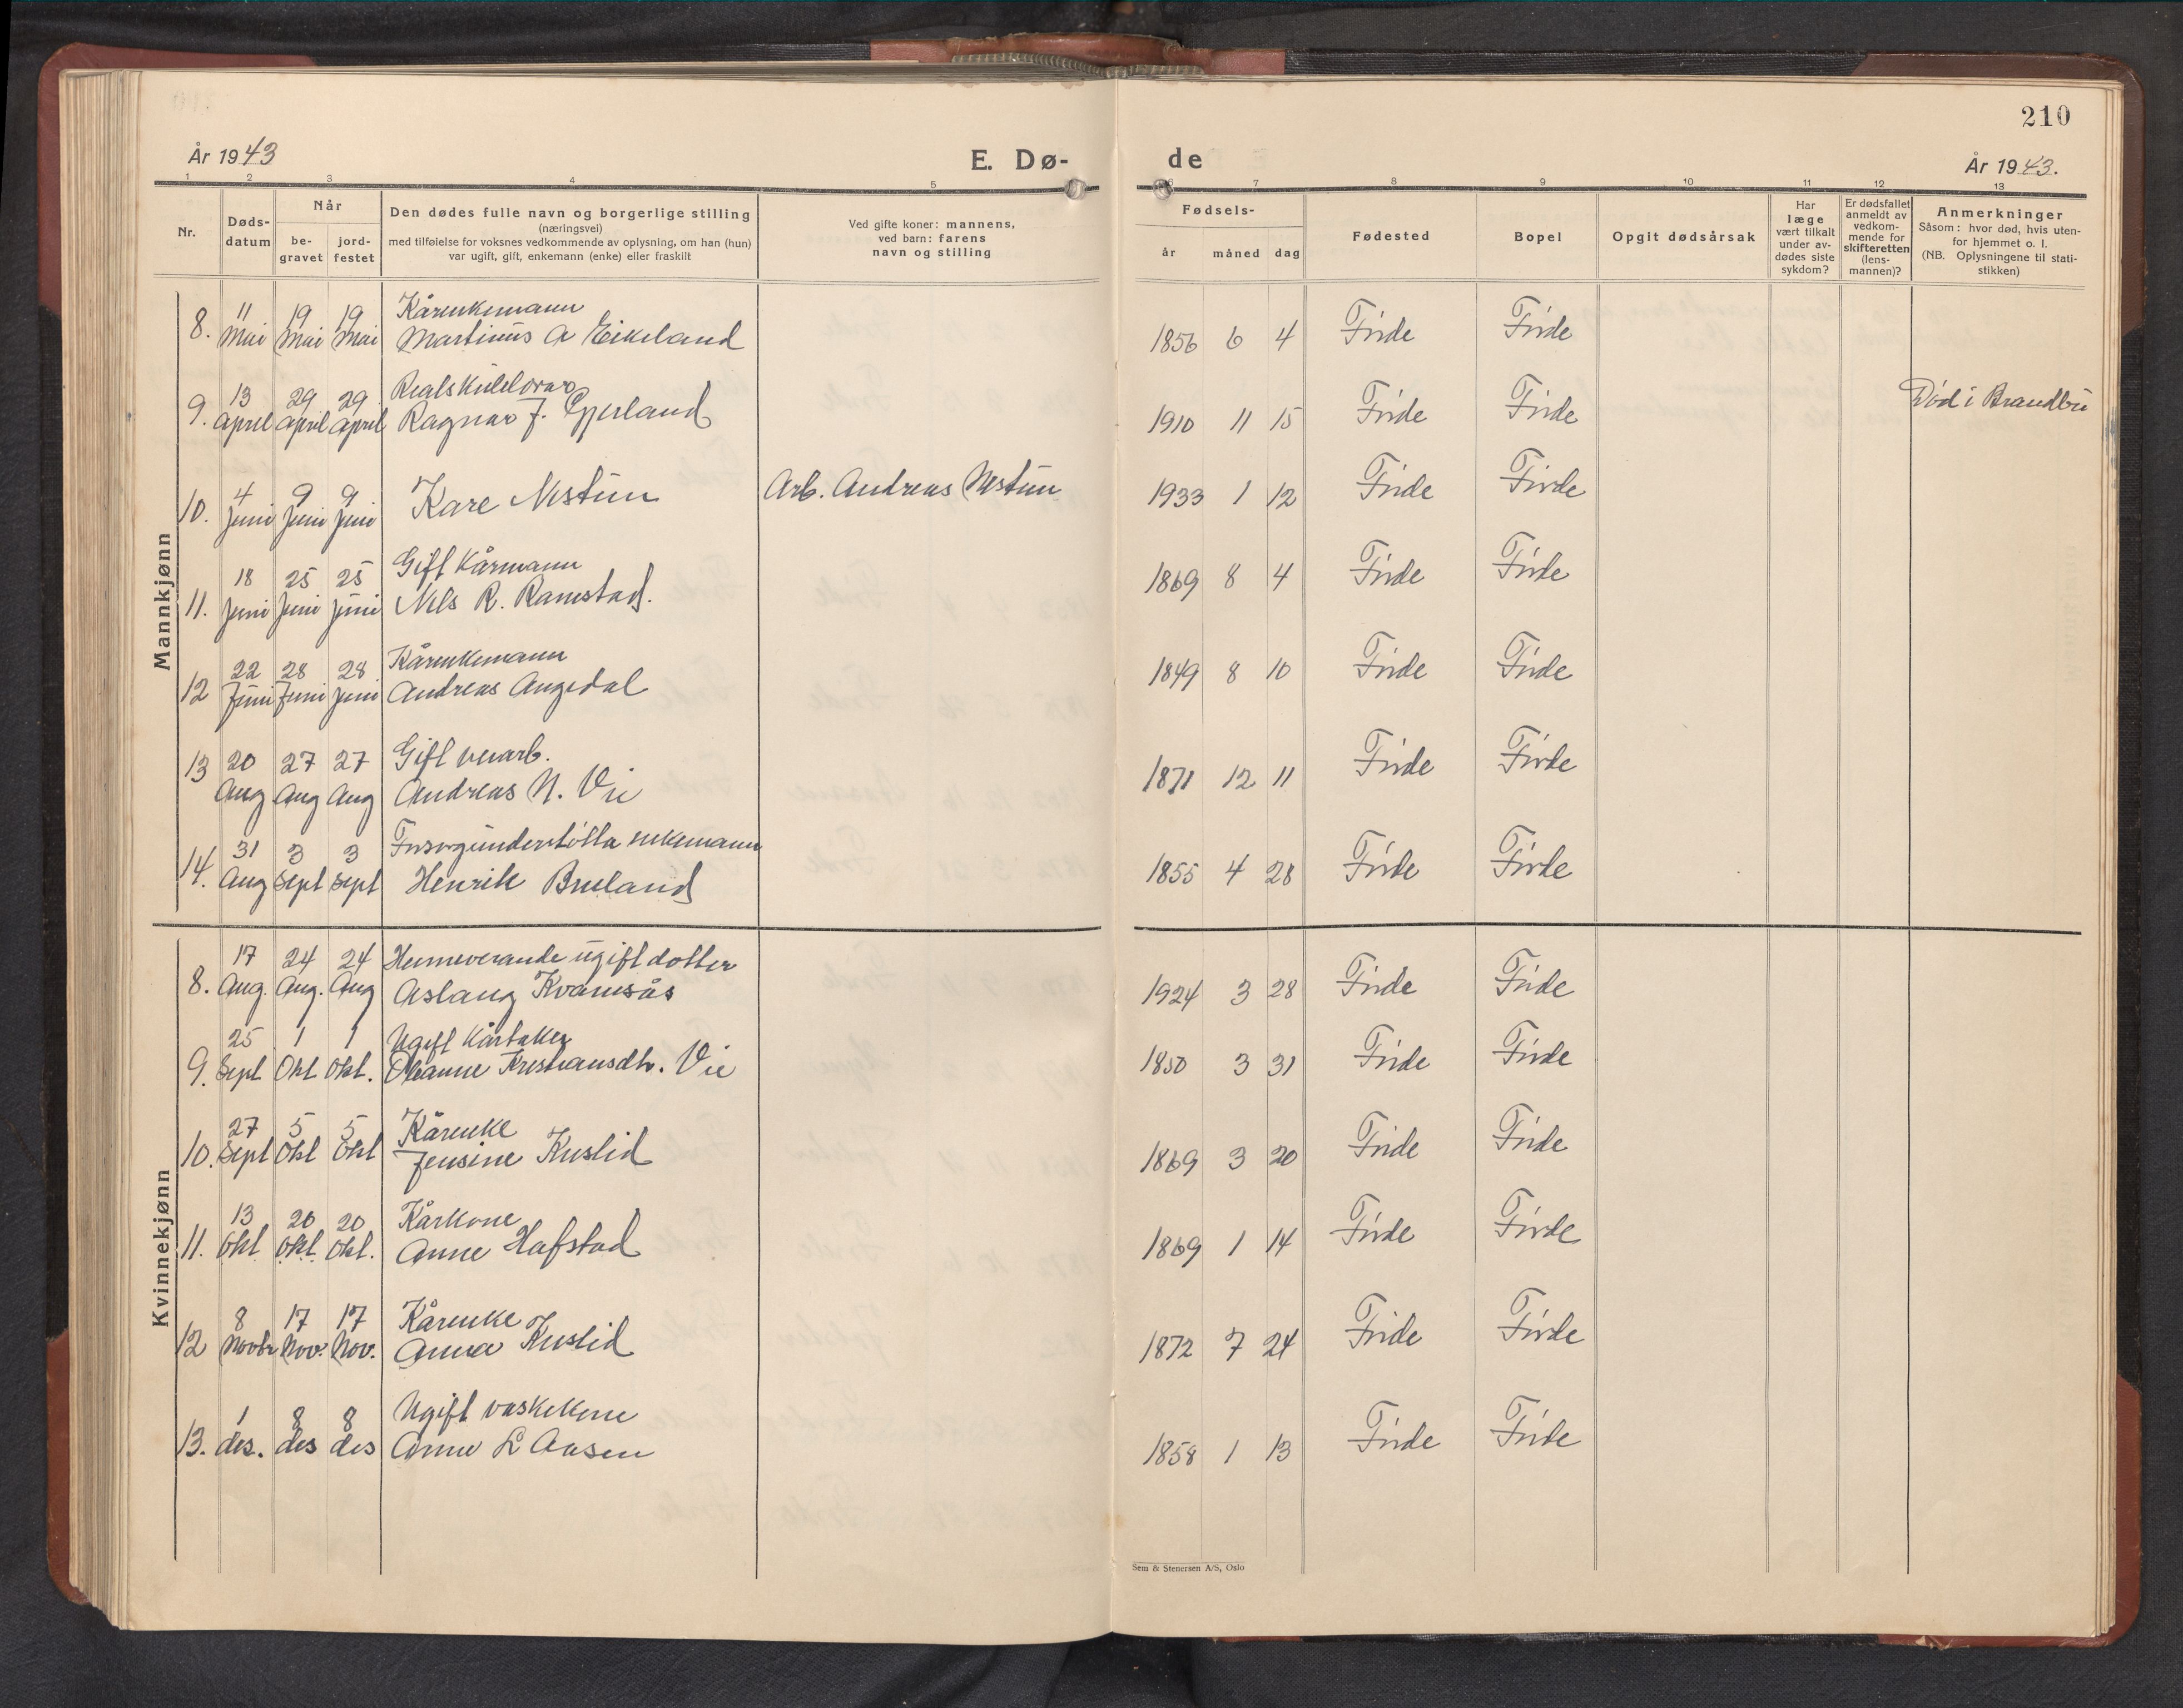 210
År 1943
E. Dø-
de
År 1943.
1 2 3 4 5 6 7 8 9 10 11 12 13
Nr.
Døds-
datum
Når
be-
gravet
jord-
festet
Den dødes fulle navn og borgerlige stilling
(næringsvei)
med tilføielse for voksnes vedkommende av oplysning, om han (hun)
var ugift, gift, enkemann (enke) eller fraskilt
Ved gifte koner: mannens,
ved barn: farens
navn og stilling
Fødsels-
år måned dag
Fødested
Bopel
Opgit dødsårsak
Har
læge
vært tilkalt
under av-
dødes siste
sykdom?
Er dødsfallet
anmeldt av
vedkom-
mende for
skifteretten
(lens-
mannen)?
Anmerkninger
Såsom: hvor død, hvis uten-
for hjemmet o. l.
(NB. Oplysningene til stati-
stikken)
Mannkjønn
11 19 19 Kårenkemann
8. Mai Mai Mai Martinus A Eikeland 1856 6 4 Førde Førde
13 29 29 Realskulelærar
9. April April April Ragnar J. 1910 11 15 Førde Førde Død i Brandbu
4 9 9
10. Juni Juni Juni Kåre Nestun Arb. Andreas Nestun 1933 1 12 Førde Førde
18 25 25 Gift Kårmann
11. Juni Juni Juni Nils R. Ramstad. 1869 8 4 Førde Førde
22 28 28 Kårenkemann
12 Juni Juni Juni Andreas Angedal 1849 8 10 Førde Førde
20 27 27 Gift veiarb.
13 Aug Aug Aug Andreas N. Vie 1871 12 11 Førde Førde
31 3 3 Forsorgunderstøtta enkemann
14. Aug Sept Sept Henrik Bruland 1855 4 28 Førde Førde
Kvinnekjønn
17 24 24 Heimeverande ugift dotter
8. Aug. Aug. Aug Aslaug Kvamsås 1924 3 28 Førde Førde
25 1 1 Ugift Kårtaker
9. Sept Okt Okt. Oleanne Kristiansdtr. Vie 1850 3 31 Førde Førde
27 5 5 Kårenke
10. Sept Okt Okt Jensine Kuslid 1869 3 20 Førde Førde
13 20 20 Kårkone
11. Okt Okt. Okt. Anne Hafstad 1869 1 14 Førde Førde
8 17 17 Kårenke
12 Novbr Nov. Nov. Anna Kuslid 1872 7 24 Førde Førde
1 8 8 Ugift vaskekone
13. des. des des Anne L Aasen 1858 1 13 Førde Førde
Sem & Stenersen A/S, Oslo